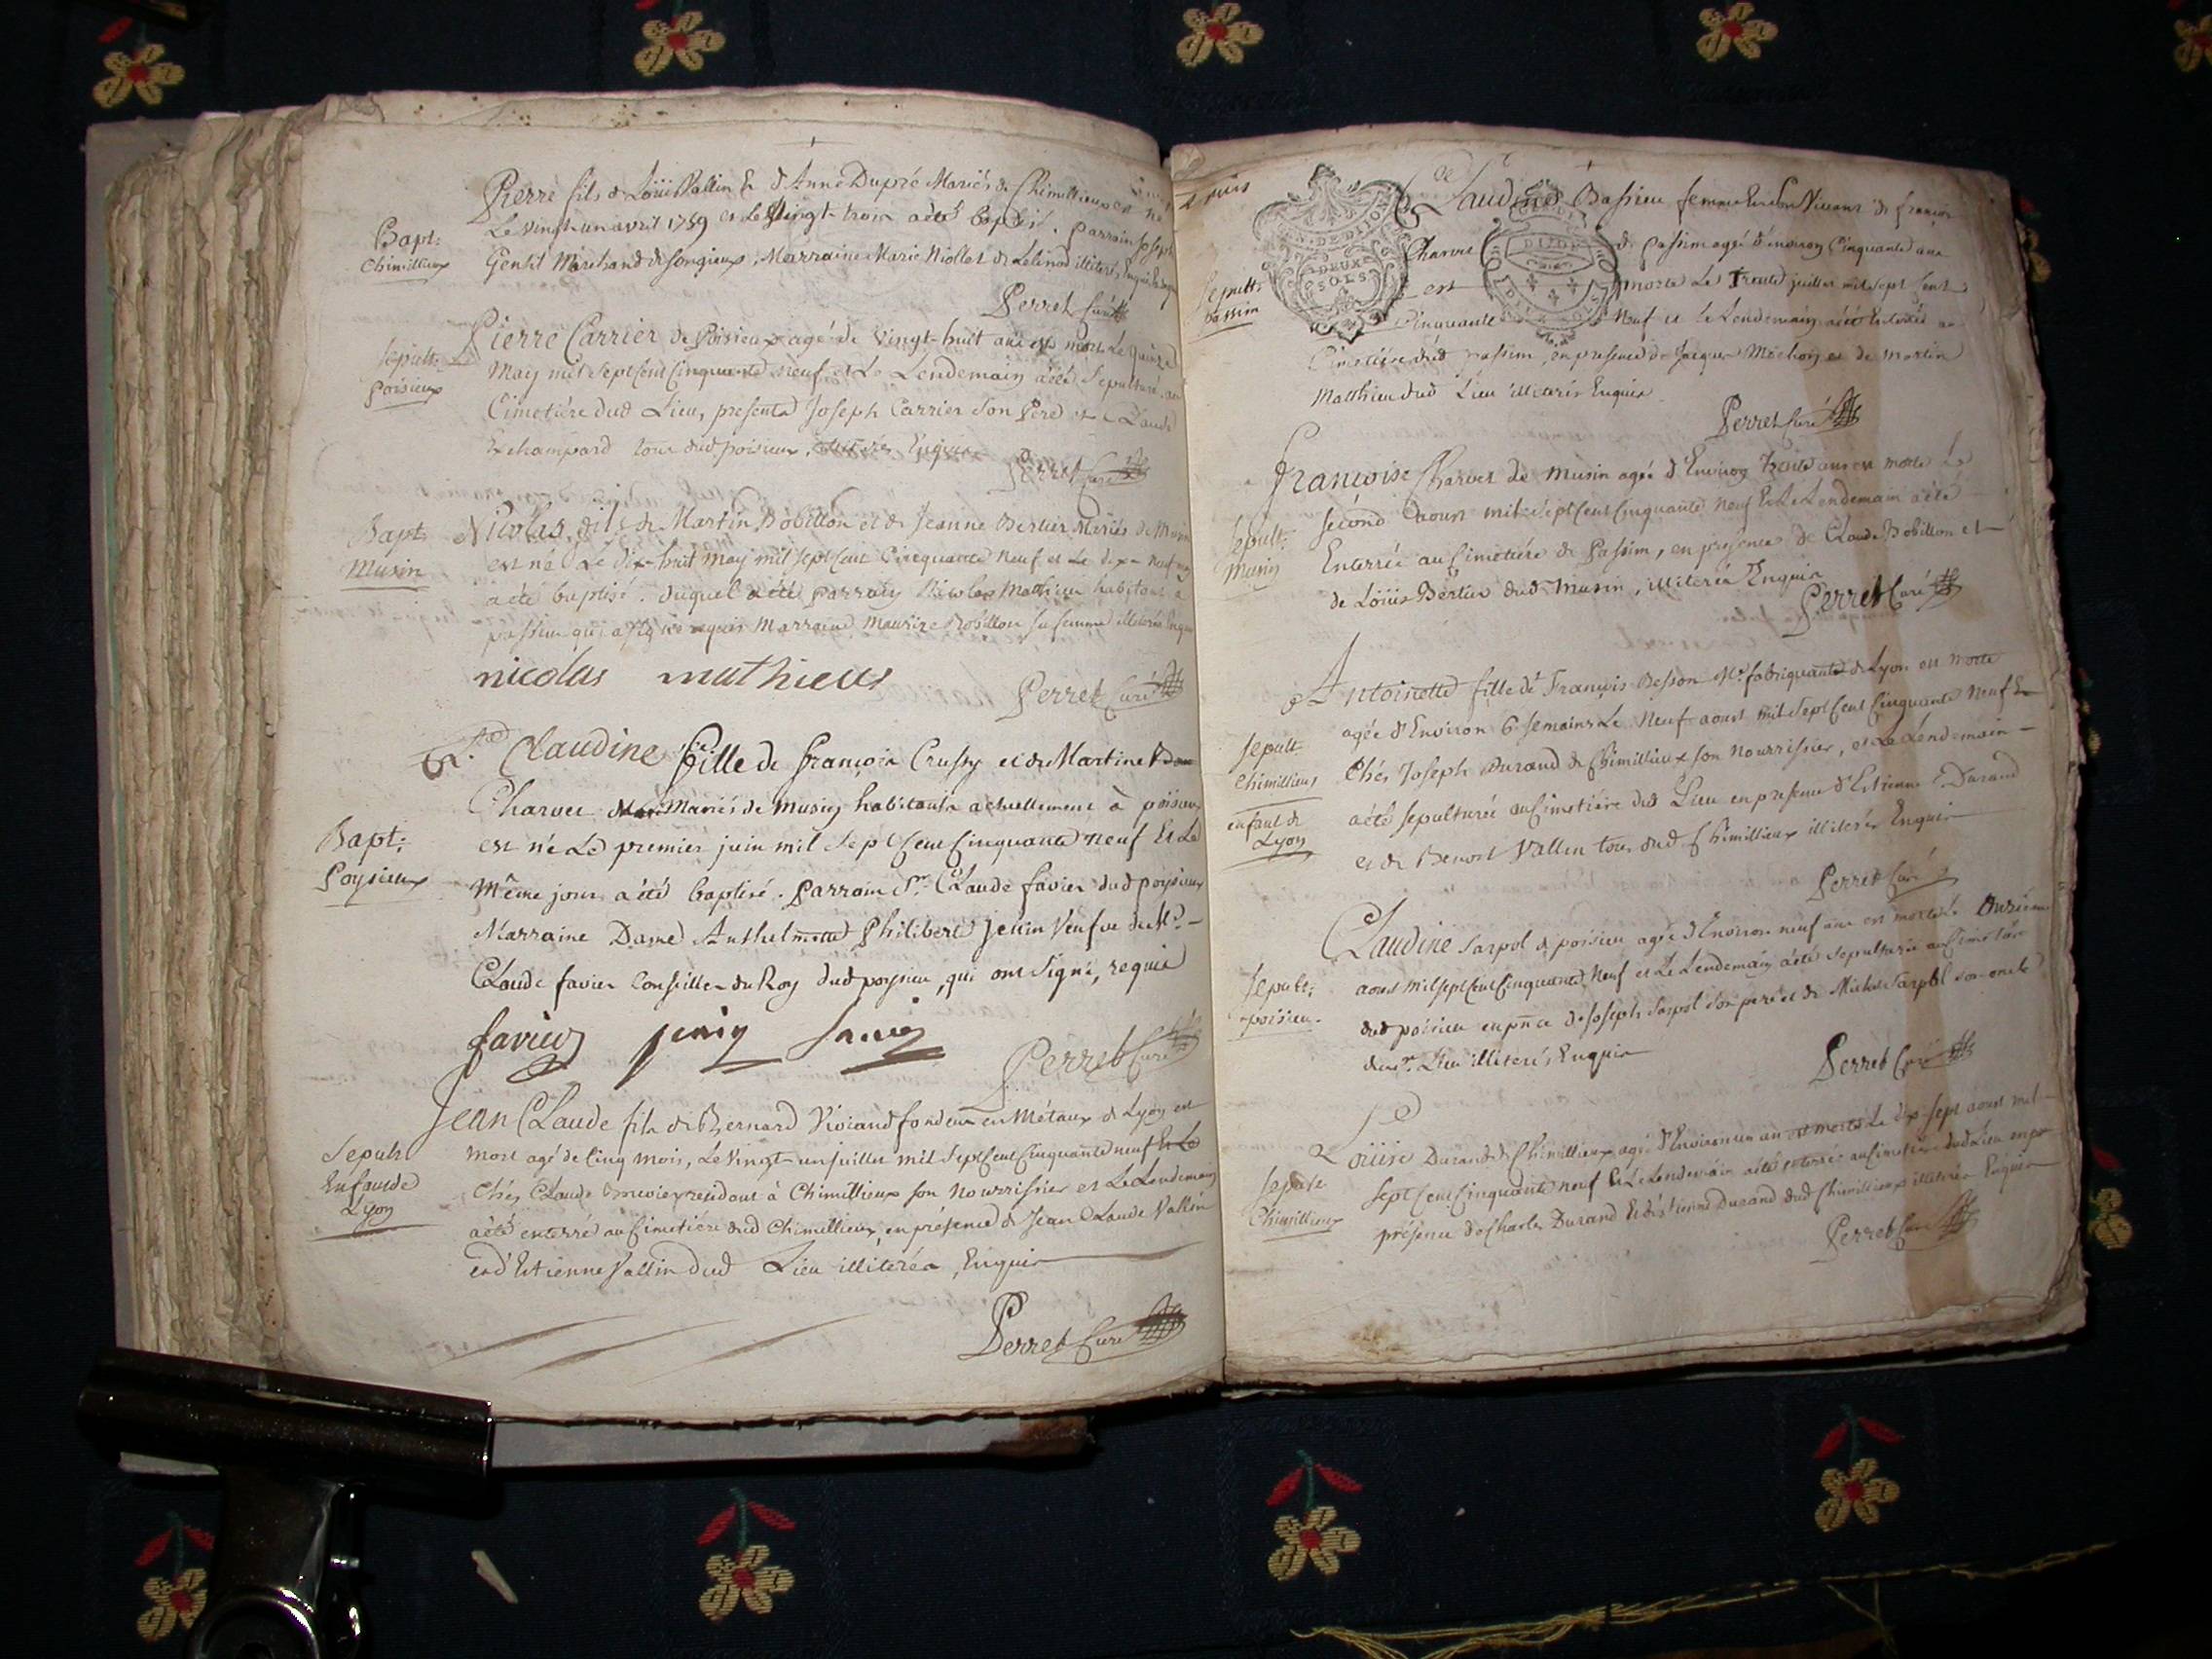 Bapt:
Chimillieux
Pierre fils de Loüis Vallin & d'Anne Dupré Mariés de Chimillieux est né
Le vingt-un avril 1759 et Le Vingt-trois a été baptisé. parrain Joseph
Gentil Marchand de Songieux, Marraine Marie Niollet de illiterés Enquis
Perret Curé
Sepult:
Poisieux
Pierre Carrier de Poisieux agé de Vingt-huit ans est mort Le quinze
May mil sept Cent Cinquante neuf et Le Lendemain a été Sepulturé au
Cimetiére dud Lieu, presents Joseph Carrier son Pere et Claude
Echampard tous dud poisieux, Enquis
Perret Curé
Bapt:
Musin
Nicolas fils de Martin Bobillon et de Jeanne Bertier Mariés de Musin
est né Le dix-huit May mil sept Cent Cinquante Neuf et Le dix-Neuf
a été baptisé. duquel a été parrain Nicolas Matthieu habitant a
passin qui a signé requis Marraine Maurize Bobillon sa femme illiterée Enquise
nicolas mathieus
Perret Curé
Claudine fille de François Crussy et de Martine
Charvet Mariés de Musin habitants actuellement à poisieux
est né Le premier juin mil sept Cent Cinquante neuf Et Le
Bapt:
Poysieux
Même jour a été baptisé. parrain Sr. Claude favier dud poysieux
Marraine Dame Anthelmette Philiberte Jenin Veufve de Mr.
Claude favier Conseiller du Roy dud poysieu, qui ont signé, requis
favier jenin favier
Perret Curé
Sepult
Enfant de
Lyon
Jean Claude fils de Bernard fondeur en Métaux de Lyon est
Mort agé de Cinq mois, Le Vingt-un juillet mil Sept Cent Cinquante neuf Et Le
Chés Claude a Chimillieux son Nourrissier et Le Lendemain
a été enterré au Cimetiére dud Chimillieux, en présence de Jean Claude Vallin
et d'Estienne Vallin dud Lieu illiterés, Enquis
Perret Curé
Sepult:
passin
Claudine Bassieu femme En son Vivant de françois
GEN. DE DIJON
DEUX SOLS
DIJON
Charvet de Passim agée d'environ Cinquante ans
est morte Le Trente juillet mil sept Cent
Cinquante Neuf et le Lendemain a été Enterrée au
Cimetiére dud passim, en presence de Jacques Michoin et de Martin
Matthieu dud Lieu illiterés Enquis
Perret Curé
Sepult:
Musin
Françoise Charvet de Musin agée d'Environ Trente ans est morte Le
second aoust mil Sept Cent Cinquante Neuf Et Le Lendemain a été
Enterrée au Cimetiére de Passim, en presence de Claude Bobillon et
de Loüis Bertier dud Musin, illiterés Enquis
Perret Curé
Sepult
Chimillieux
enfant de
Lyon
Antoinette fille de François Besson Me. fabriquante de Lyon est morte
agée d'Environ 6 semaines Le Neuf aoust mil Sept Cent Cinquante Neuf &
Chés Joseph Durand de Chimillieux son Nourrissier, et Le Lendemain
a été sepulturée au Cimetiére dud Lieu en presence d'Estienne Durand
et de Benoit Vallin tous dud Chimillieux illiterés Enquis
Perret Curé
Sepult:
poisieu
Claudine Sarpol de poisieu agée d'Environ neuf ans est morte Le Onziéme
aoust mil sept Cent Cinquante Neuf et Le Lendemain a été sepulturée au Cimetiére
dud poisieu en pnce de Joseph Sarpol son pere et de Michel Sarpol son oncle
Lieu illiterés Enquis
Perret Curé
Sepult
Chimillieux
Loüise Durand de Chimillieux agée d'Environ un an est morte Le dix-sept aoust mil
sept Cent Cinquante neuf & Le Lendemain a été enterrée au Cimetiére dud Lieu en
présence de Charles Durand Et d'Estienne Durand dud Chimillieux illiterés Enquis
Perret Curé